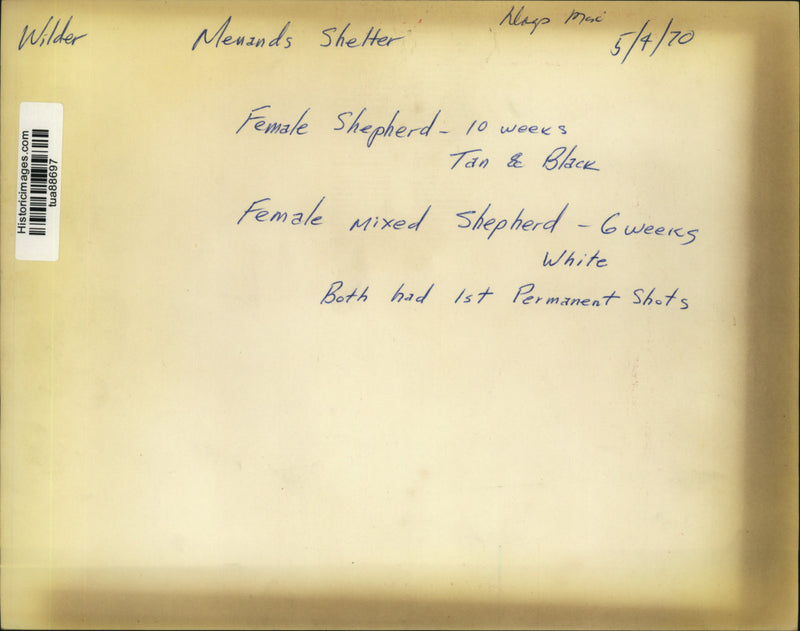 Wilder Menands Shelter Dogs Misc 5/4/70
Female Shepherd - 10 weeks
Tan & Black
Female Mixed Shepherd - 6 weeks
White
Both had 1st Permanent Shots
Historicimages.com
tua88697